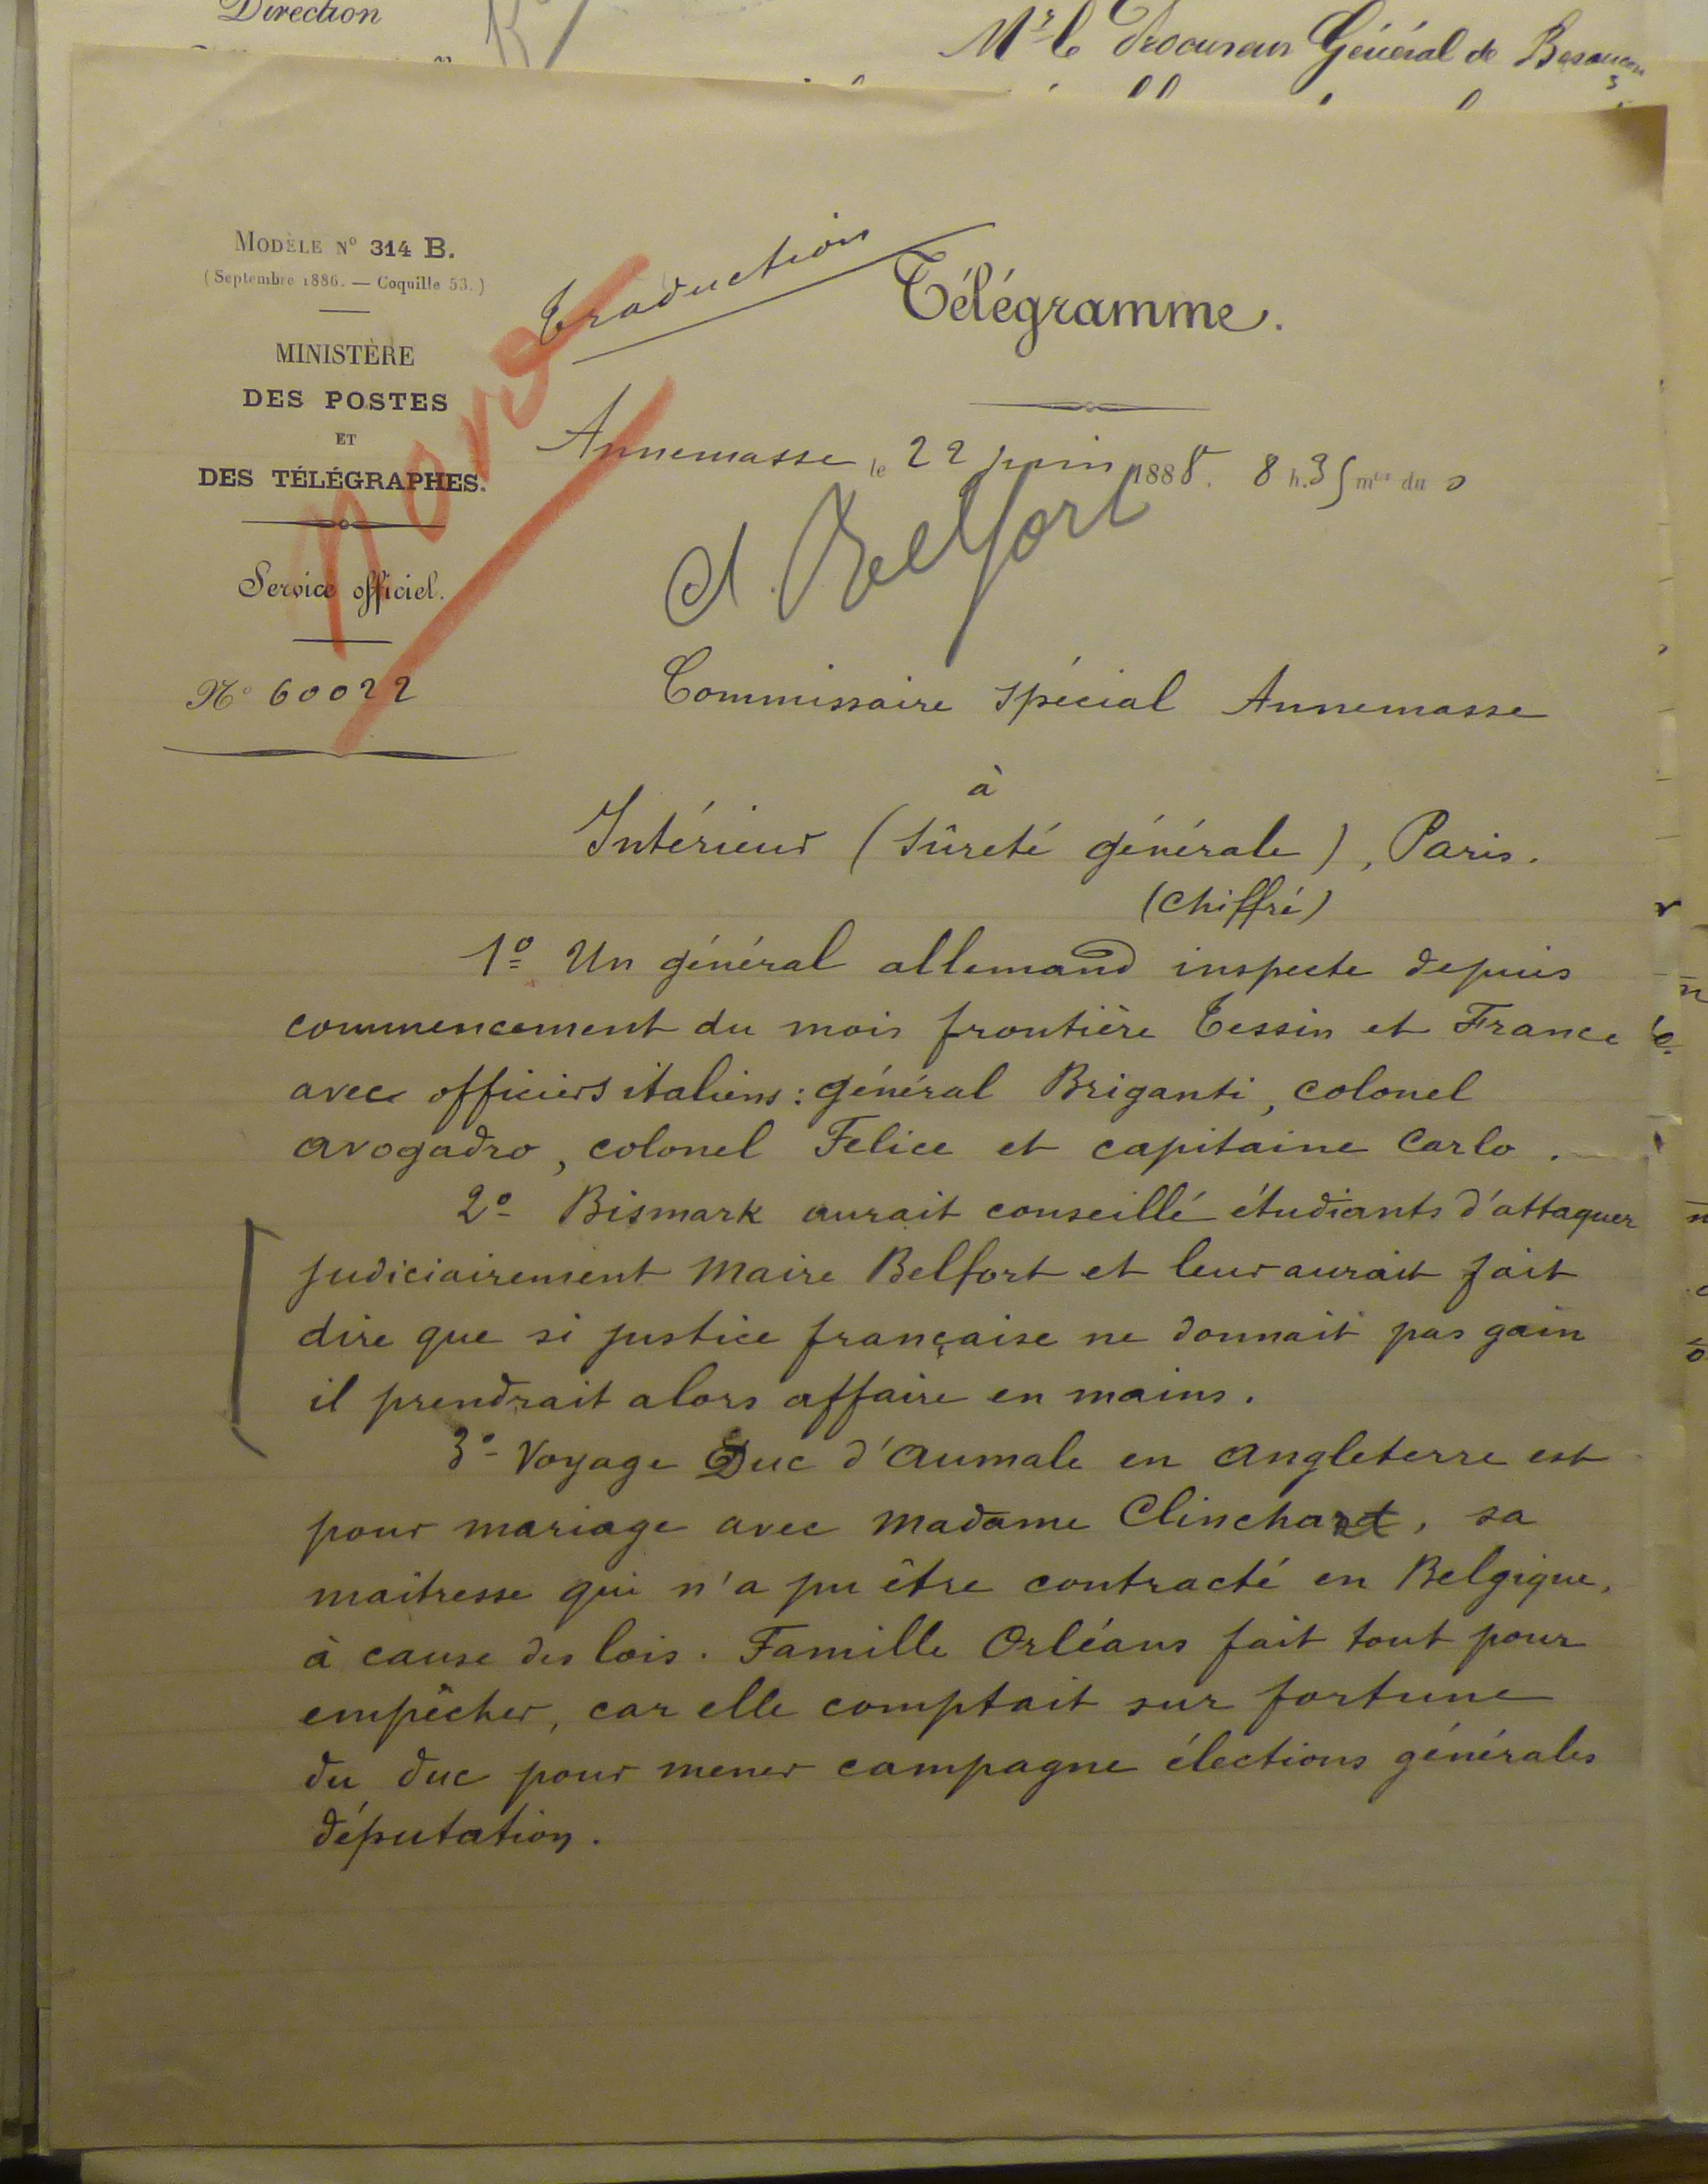 Direction
Mr le Procureur Général de Besançon
MODÈLE No 314 B.
(Septembre 1886. — Coquille 53.)
MINISTÈRE
DES POSTES
ET
DES TÉLÉGRAPHES.
Service officiel.
No 60022
Traduction
Télégramme.
Annemasse, le 22 juin 1888. 8 h. 35 mtes du s
d. Belfort
Commissaire spécial Annemasse
à
Intérieur (Sûreté générale), Paris.
(Chiffré)
1o Un général allemand inspecte depuis
commencement du mois frontière Tessin et France
avec officiers italiens : général Briganti, colonel
avogadro, colonel Felice et capitaine Carlo.
2o Bismark aurait conseillé étudiants d'attaquer
judiciairement Maire Belfort et leur aurait fait
dire que si justice française ne donnait pas gain
il prendrait alors affaire en mains.
3o Voyage Duc d'Aumale en Angleterre est
pour mariage avec Madame Clinchant, sa
maitresse qui n'a pu être contracté en Belgique,
à cause des lois. Famille Orléans fait tout pour
empêcher, car elle comptait sur fortune
du duc pour mener campagne élections générales
députation.